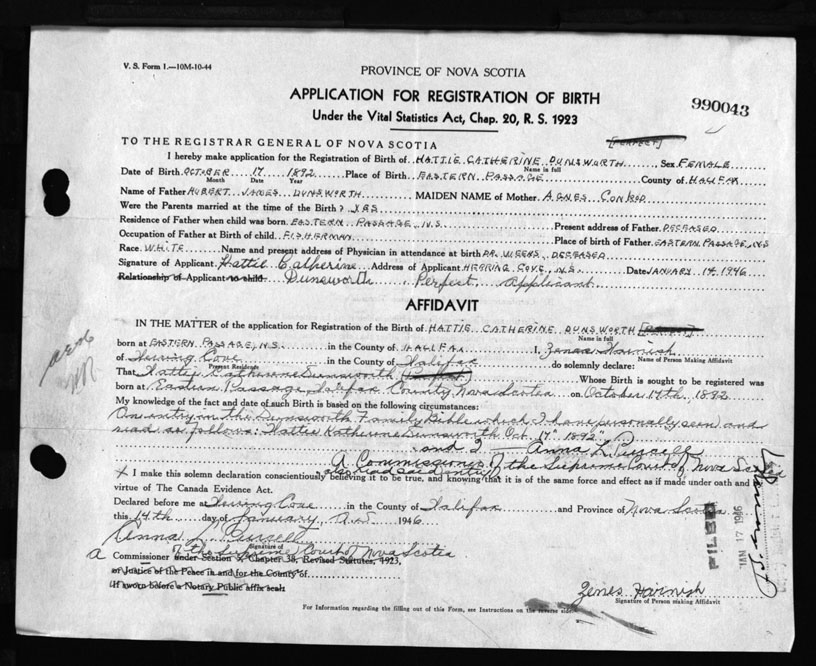 V. S. Form 1.—10M-10-44
PROVINCE OF NOVA SCOTIA
APPLICATION FOR REGISTRATION OF BIRTH
990043
Under the Vital Statistics Act, Chap. 20, R. S. 1923
TO THE REGISTRAR GENERAL OF NOVA SCOTIA [PERFECT]
I hereby make application for the Registration of Birth of HATTIE CATHERINE DUNSWORTH Sex FEMALE
Name in full
Date of Birth OCTOBER 17 1892 Place of Birth EASTERN PASSAGE County of HALIFAX
Month Date Year
Name of Father AUBERT JAMES DUNSWORTH MAIDEN NAME of Mother AGNES CONROD
Were the Parents married at the time of the Birth? YES
Residence of Father when child was born EASTERN PASSAGE N.S. Present address of Father DECEASED
Occupation of Father at Birth of child FISHERMAN Place of birth of Father EASTERN PASSAGE, N.S
Race WHITE Name and present address of Physician in attendance at birth DR. DECEASED
Signature of Applicant Hattie Catherine Address of Applicant HERRING COVE, N.S. Date JANUARY 14 1946
Relationship of Applicant to child Dunsworth Perfect, Applicant
AFFIDAVIT
IN THE MATTER of the application for Registration of the Birth of HATTIE CATHERINE DUNSWORTH
Name in full
born at EASTERN PASSAGE, N.S. in the County of HALIFAX I, Zenes Hairnish
Name of Person Making Affidavit
of Herring Cove in the County of Halifax do solemnly declare:
Present Residence
That Hattie Katherine Dunsworth Whose Birth is sought to be registered was
born at Eastern Passage, Halifax County, Nova Scotia on October 17th, 1892
My knowledge of the fact and date of such Birth is based on the following circumstances:
An entry in the Dunsworth Family Bible which I have personally seen and
read as follows: Hattie Katherine Dunsworth Oct. 17" 1892
and I Anna L. Purcell
A Commissioner of the Supreme Court of Nova Scotia
also read said entry
X I make this solemn declaration conscientiously believing it to be true, and knowing that it is of the same force and effect as if made under oath and by
virtue of The Canada Evidence Act.
Declared before me at Herring Cove in the County of Halifax and Province of Nova Scotia
this 14th day of January A.D. 1946
Anna L. Purcell
Signature of
of the Supreme Court of Nova Scotia
a Commissioner under Section 2, Chapter 38, Revised Statutes, 1923,
or Justice of the Peace in and for the County of
(If sworn before a Notary Public affix seal)
Zenes Hairnish
Signature of Person Making Affidavit
For Information regarding the filling out of this Form, see Instructions on the reverse side.
FILED
JAN 17 1946